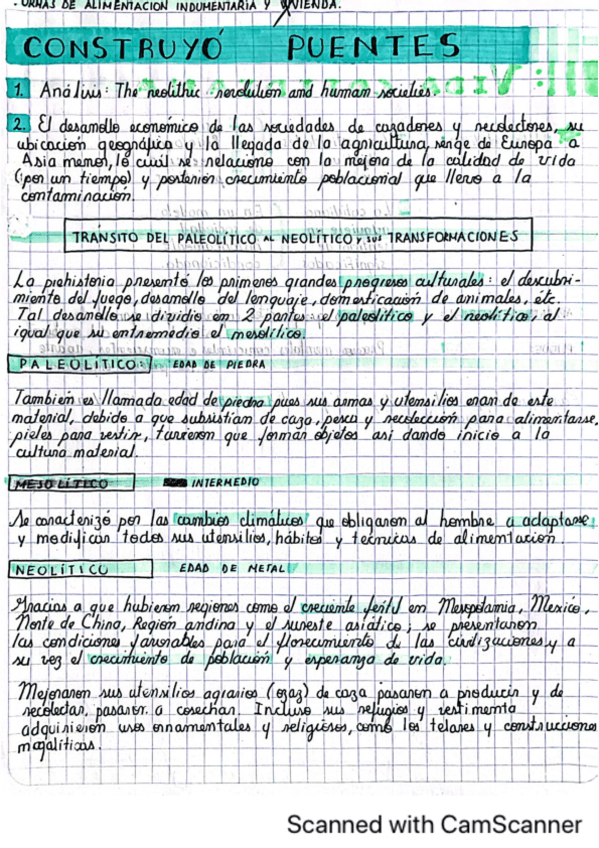 · URNAS DE ALIMENTACIÓN INDUMENTARIA Y VIVIENDA.
CONSTRUYÓ PUENTES
1. Análisis: The neolithic revolution and human societies.
2. El desarrollo económico de las sociedades de cazadores y recolectores, su
ubicación geográfica y la llegada de la agricultura, surge de Europa a
Asia menor, lo cual se relaciona con la mejora de la calidad de vida
(por un tiempo) y posterior crecimiento poblacional que llevo a la
contaminación.
TRÁNSITO DEL PALEOLÍTICO AL NEOLÍTICO Y sus TRANSFORMACIONES
La prehistoria presentó los primeros grandes progresos culturales: el descubri-
miento del fuego, desarrollo del lenguaje, domesticación de animales, étc.
Tal desarollo se dividio en 2 partes el paleolítico y el neolítico, al
igual que su entremedio el mesolítico.
PALEOLÍTICO: EDAD DE PIEDRA
También es llamada edad de piedra pues sus armas y utensilios eran de este
material, debido a que subsistían de caza, pesca y recolección para alimentarse,
pieles para vestir, tuvieron que formar objetos asi dando inicio a la
cultura material.
MESOLÍTICO INTERMEDIO
Se caracterizó por los cambios climáticos que obligaron al hombre a adaptarse
y modificar todos sus utensilios, hábitos y tecnicas de alimentación.
NEOLÍTICO EDAD DE METAL
Gracias a que hubieron regiones como el creciente fertil en Mesopotamia, Mexico,
Norte de China, Región andina y el sureste asiático; se presentaron
las condiciones favorables para el florecimiento de las civilizaciones y a
su vez el crecimiento de población y esperanza de vida.
Mejoraron sus utensilios agrarios (ozaz) de caza pasaron a producir y de
recolectar, pasaron a cosechar. Incluso sus refugios y vestimenta
adquirieron usos ornamentales y religiosos, como los telares y construcciones
magalíticas.
Scanned with CamScanner